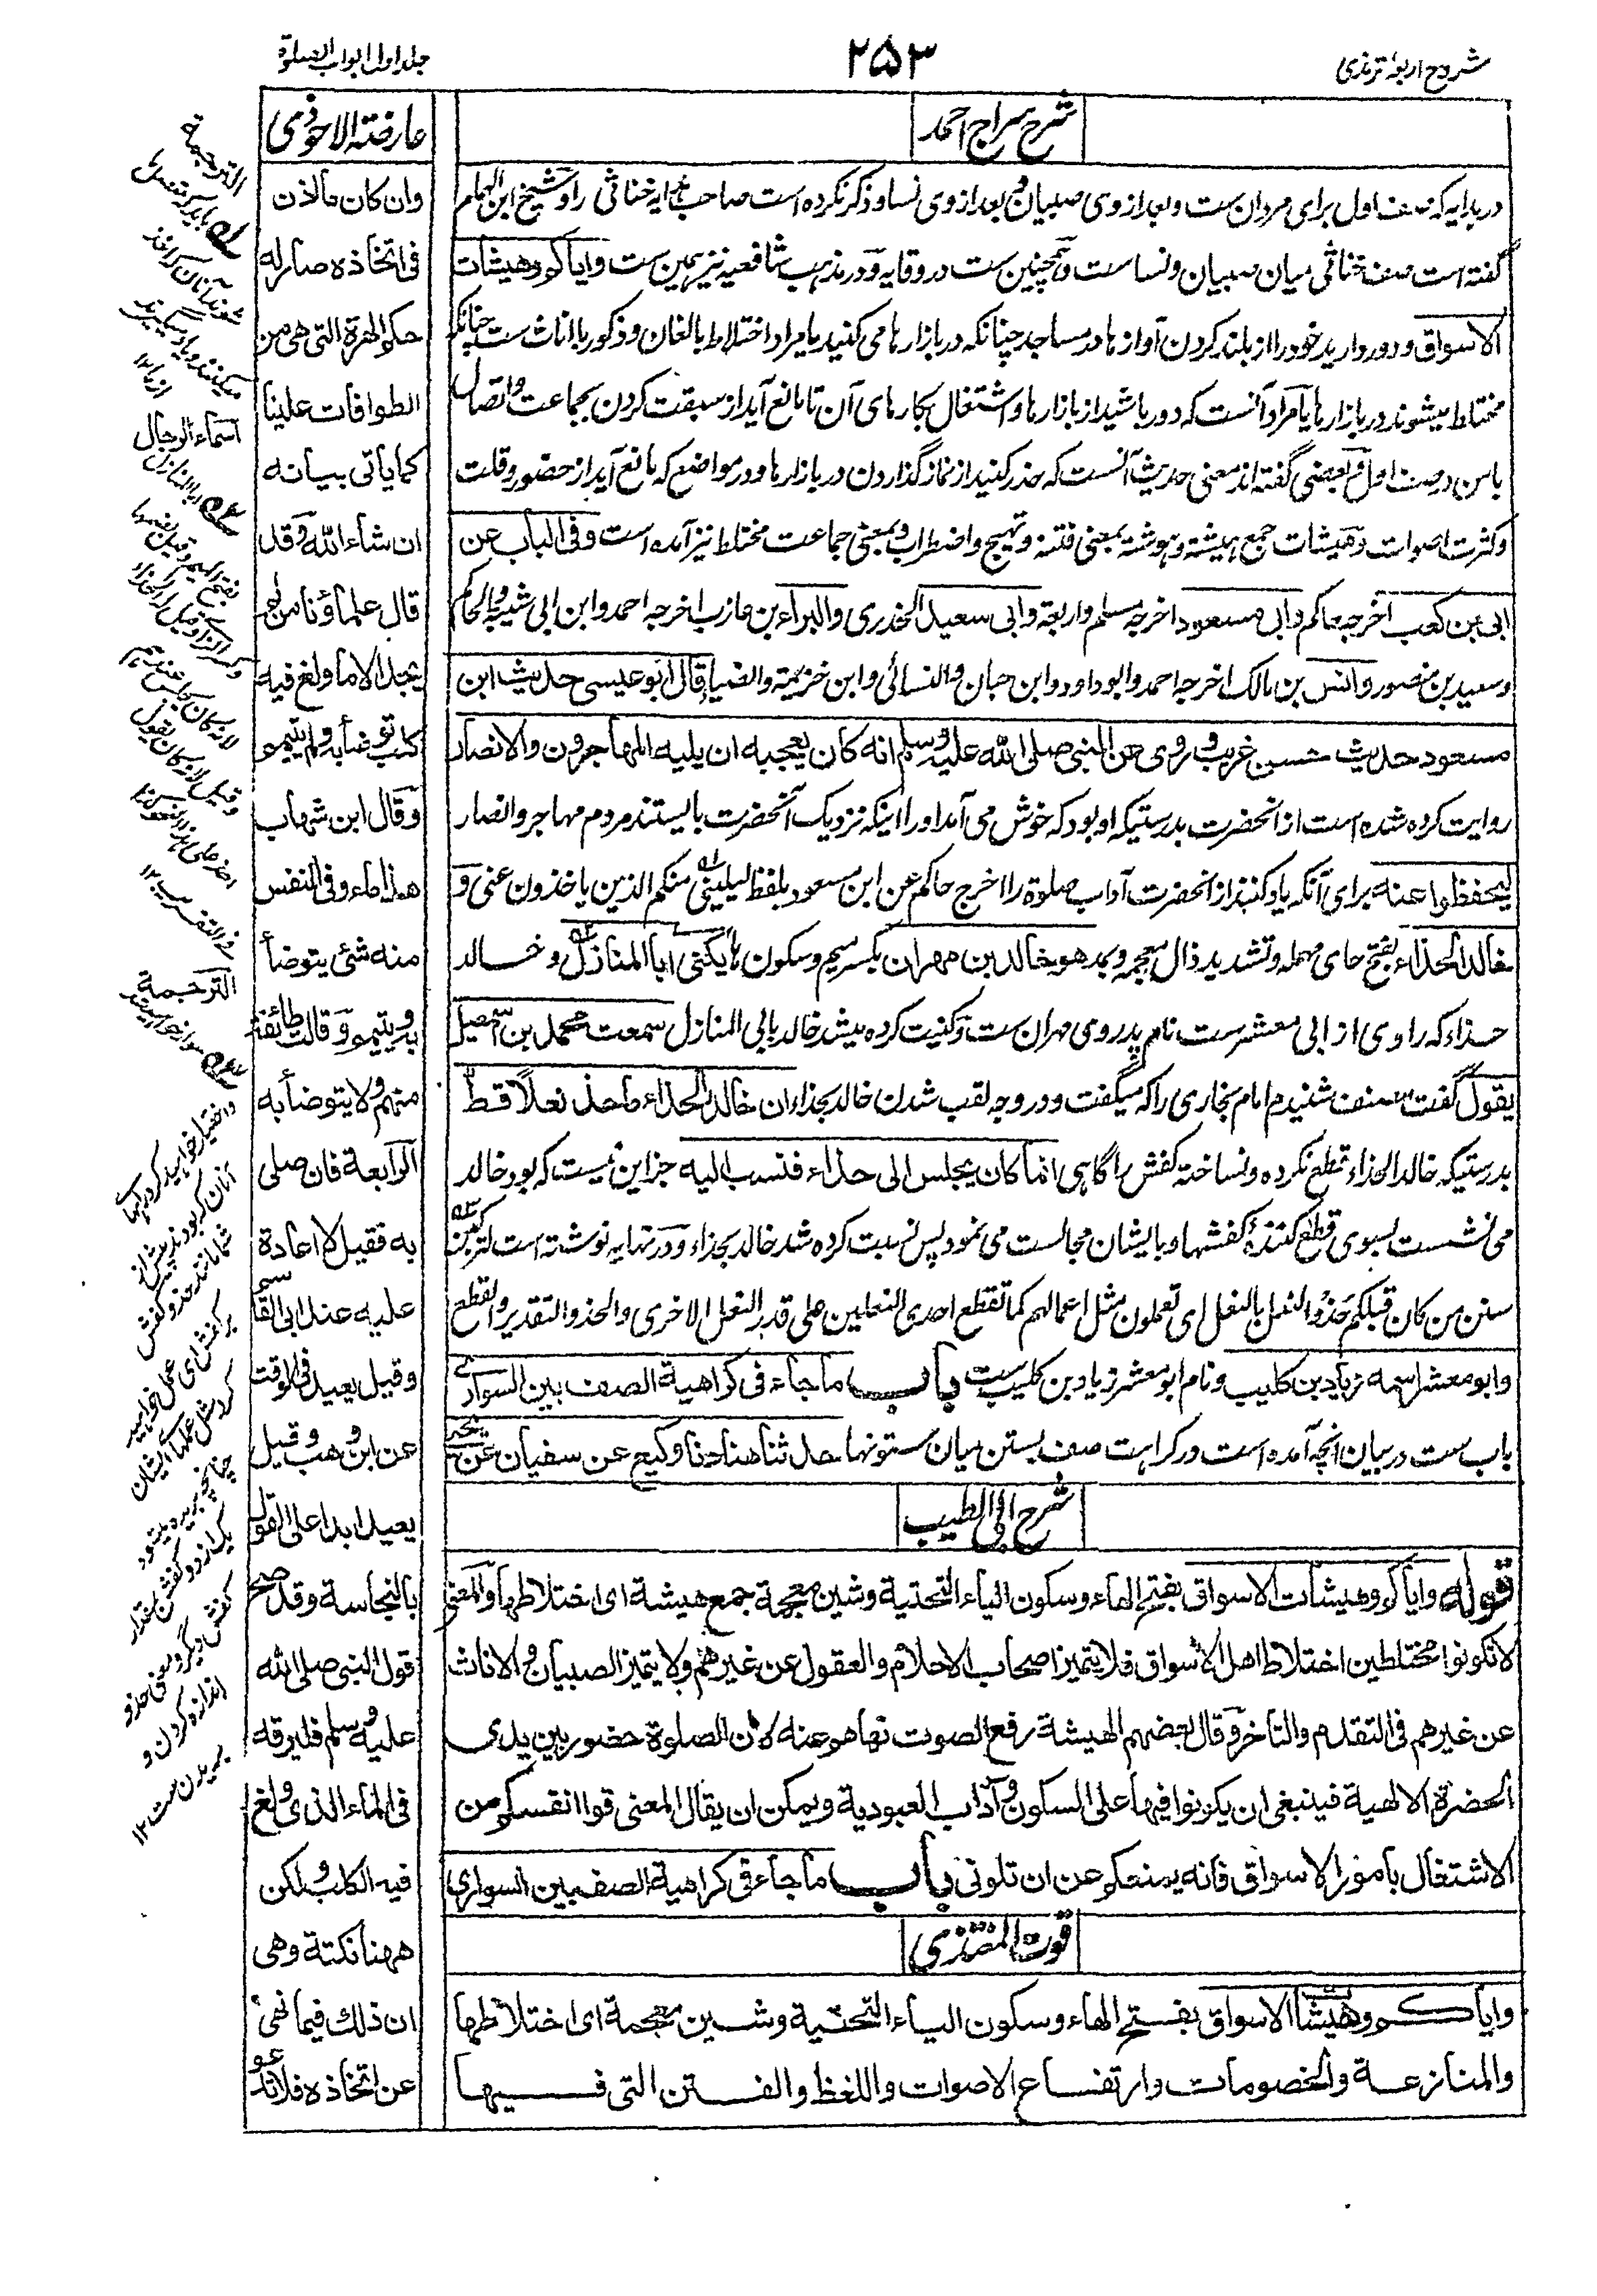 شروح اربعهٔ ترمذی
۲۵۳
جلد اول ابواب الصلوة
شرح سراج احمد
در هدایه که صف اول برای مردان ست و بعد از وی صبیان و بعد از وی نسا و ذکر نکرده است صاحب هدایه خناثی را و شیخ ابن الهمام
گفته است صف خناثی میان صبیان و نسا ست و همچنین ست در وقایه و در مذهب شافعیه نیز همین ست وایاکم وهیشات
الاسواق و دور دارید خود را از بلند کردن آواز ها در مساجد چنانکه در بازار ها می کنید یا مراد اختلاط بالغان و ذکور با اناث ست چنانکه
مختلط میشوند در بازار ها یا مراد آنست که دور باشید از بازار ها و اشتغال بکارهای آن تا مانع آید از سبقت کردن بجماعت و اتصال
بامن در صف اول و بعضی گفته اند معنی حدیث آنست که حذر کنید از نماز گذاردن در بازار ها و در مواضع که مانع آید از حضور و قلت
وکثرت اصوات وهیشات جمع هیشته و هوشته بمعنی فتنه و تهیج و اضطراب و بمعنی جماعت مختلط نیز آمده است وفی الباب عن
ابی بن کعب اخرجه حاکم وابی مسعود اخرجه مسلم و اربعة وابی سعید الخدری والبراء بن عازب اخرجه احمد وابن ابی شیبه والحاکم
وسعید بن منصور وانس بن مالک اخرجه احمد وابو داود وابن حبان والنسائی وابن خزیمة والضیا قال ابو عیسی حدیث ابن
مسعود حدیث حسن غریب وروی عن النبی صلی الله علیه وسلم انه کان یعجبه ان یلیه المهاجرون والانصار
روایت کرده شده است از آنحضرت بدرستیکه او بود که خوش می آمد او را اینکه نزدیک آنحضرت بایستند مردم مهاجر و انصار
لیحفظوا عنه برای آنکه یاد کنند از آنحضرت آداب صلوة را اخرج حاکم عن ابن مسعود بلفظ لیلینی منکم الذین یاخذون عنی و
خالد الحذاء بفتح حای مهمله و تشدید ذال معجمه و بمد هو خالد بن مهران بکسر میم وسکون ها یکنی ابا المنازل و خالد
حذاء که راوی از ابی معشر ست نام پدر وی مهران ست و کنیت کرده میشد خالد بابی المنازل سمعت محمد بن اسمعیل
یقول گفت مصنف شنیدم امام بخاری را که میگفت و در وجه لقب شدن خالد بحذاء ان خالد الحذاء ما حذا نعلاً قط
بدرستیکه خالد الحذاء قطع نکرده و نساخته کفش را گاهی انما کان یجلس الی حذاء فنسب الیه جز این نیست که بود خالد
می نشست بسوی قطع کنندهٔ کفشها و با ایشان مجالست می نمود پس نسبت کرده شد خالد بحذاء و در نهایه نوشته است لترکبن
سنن من کان قبلکم حذو النعل بالنعل ای تعملون مثل اعمالهم کما تقطع احدی النعلین علی قدر النعل الاخری والحذو التقدیر والقطع
وابو معشر اسمه زیاد بن کلیب و نام ابو معشر زیاد بن کلیب ست باب ما جاء فی کراهیة الصف بین السواری
باب ست در بیان آنچه آمده است در کراهت صف بستن میان ستونها حدثنا هناد نا وکیع عن سفیان عن یحیی
شرح ابی الطیب
قوله وایاکم وهیشات الاسواق بفتح الهاء وسکون الیاء التحتیة وشین معجمة جمع هیشة ای اختلاطها والمعنی
لا تکونوا مختلطین اختلاط اهل الاسواق فلا یتمیز اصحاب الاحلام والعقول عن غیرهم ولا یتمیز الصبیان والاناث
عن غیرهم فی التقدم والتاخر وقال بعضهم الهیشة رفع الصوت نهاهم عنه لان الصلوة حضور بین یدی
الحضرة الالهیة فینبغی ان یکونوا فیها علی السکون وآداب العبودیة ویمکن ان یقال المعنی قوا انفسکم من
الاشتغال بامور الاسواق فانه یمنعکم عن ان تلونی باب ما جاء فی کراهیة الصف بین السواری
قوت المغتذی
وایاکم وهیشات الاسواق بفتح الهاء وسکون الیاء التحتیة وشین معجمة ای اختلاطها
والمنازعة والخصومات وارتفاع الاصوات واللغط والفتن التی فیها
عارضة الاحوذی
وان کان ماذن
فی اتخاذه صار له
حکم الهرة التی هی من
الطوافات علینا
کما یاتی بیانه
ان شاء الله وقد
قال علماؤنا من لم
یجد الا ما ولغ فیه
کلب توضأ به ولم یتیمم
وقال ابن شهاب
هذا ماء وفی النفس
منه شئ یتوضأ
به ویتیمم وقالت طائفة
منهم ولا یتوضأ به
الرابعة فان صلی
به فقیل لا اعادة
علیه عند ابی القاسم
وقیل یعید فی الوقت
عن ابن وهب وقیل
یعید ابدا علی القول
بالنجاسة وقد صح
قول النبی صلی الله
علیه وسلم فلیرقه
فی الماء الذی ولغ
فیه الکلب ولکن
ههنا نکتة وهی
ان ذلك فیما نهی
عن اتخاذه فلا تدعو
الترجمة
اسماء الرجال
الترجمة